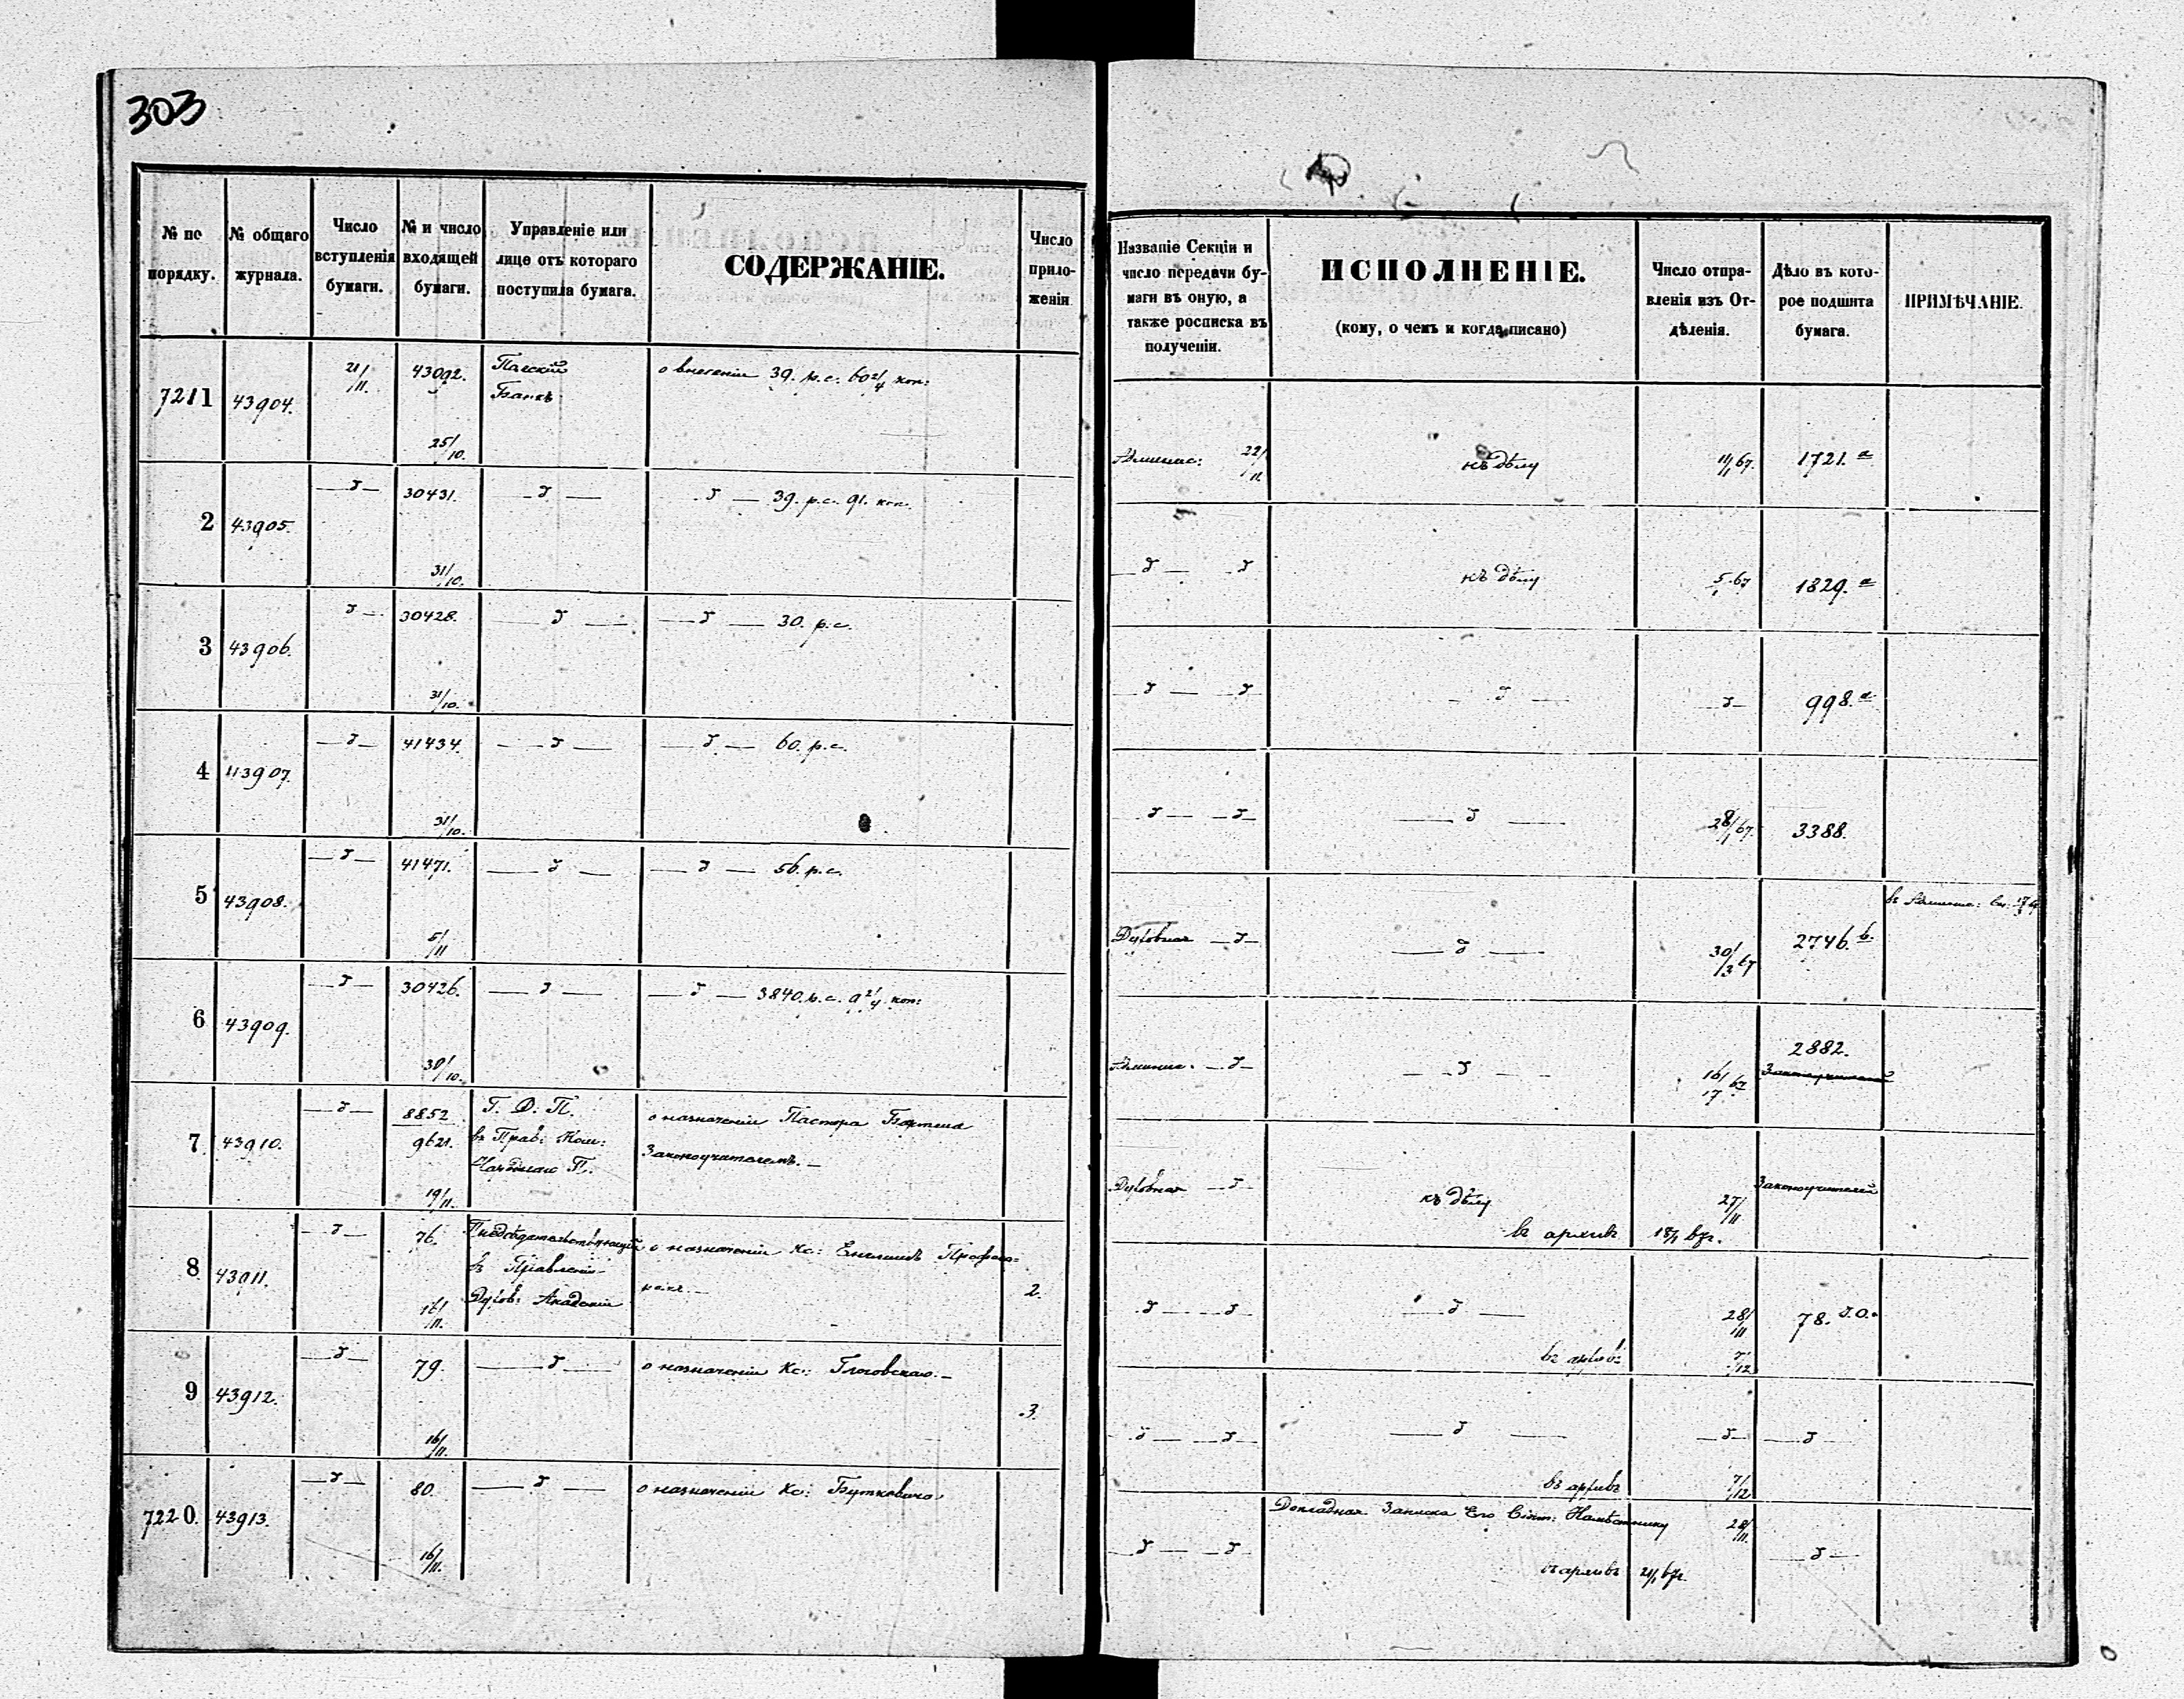 303
№ по порядку.
№ общаго журнала.
Число вступленія бумаги.
№ и число входящей бумаги.
Управленіе или лице отъ котораго поступила бумага.
СОДЕРЖАНІЕ.
Число приложеній
7211 43904. 21/11. 43092. Банкъ о внесеніи 39. р.с. 60 2/4 коп:
25/10.
2 43905. —d— 30431. —d— —d— 39. р.с. 91. коп.
31/10.
3 43906. d— 30428. —d— —d— 30. р.с.
31/10.
4 43907. —d— 41434. —d— —d— 60. р.с.
31/10.
5 43908. —d— 41471. —d— —d— 56. р.с.
5/11
6 43909. —d— 30426. —d— —d— 3840. р.с. 9 2/4 коп:
30/10.
7 43910. —d— 8852 Г. Д. П. о назначеніи Пастора
9621. въ Прав: Ком: Законоучителемъ.—
19/11.
8 43911. —d— 76. Предсѣдательствующій о назначеніи Кс: Профессо=
въ Правленіи ромъ.—
16/11. Духов: Академіи 2.
9 43912. —d— 79. —d— о назначеніи Кс: Глоговскаго.—
3.
16/11.
7220. 43913. —d— 80. —d— о назначеніи Кс: Буткевича
16/11.
Названіе Секціи и
число передачи бу-
маги въ оную, а
также росписка въ
полученіи.
ИСПОЛНЕНІЕ.
(кому, о чемъ и когда писано)
Число отпра-
вленія изъ От-
дѣленія.
Дѣло въ кото-
рое подшита
бумага.
ПРИМѢЧАНІЕ.
22/11. къ дѣлу 67. 1721. a
—d— —d къ дѣлу 67 1829. a
—d— —d —d— —d— 998. a
—d— —d— —d— 28/1 67. 3388.
Духовная —d— —d— 30/3 67 2746. b.
2882.
—d— —d— 16/17 67
Законоучителей
Духовная —d къ дѣлу 27/11 Законоучителей
въ архивъ 67г.
—d— —d —d— 28/11 78. d.o.
въ архивъ 7/12
—d— —d— —d— —d— —d—
въ архивъ 7/12
Докладная Записка Его Сіят: Намѣстнику 28/11.
—d— —d —d—
въ архивъ 67г.